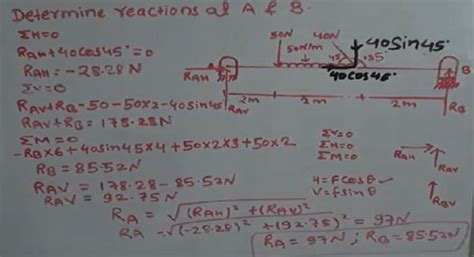 Determine reactions at A & B.
ΣH=0
RAH+40cos45°=0
RAH=-28.28N
ΣV=0
RAV+RB-50-50x2-40sin45°
RAV+RB=178.28N
ΣM=0
-RBx6+40sin45x4+50x2x3+50x2
RB=85.52N
RAV=178.28-85.52N
RAV=92.75N
RA=√(RAH)²+(RAV)²
RA=√(-28.28)²+(92.75)²=97N
RA=97N ; RB=85.52N
50N
50N/m
40Sin45°
45
135
40cos45°
RAH
B
RAV
RB
2m
2m
2m
ΣV=0
ΣH=0
ΣM=0
H=Fcosθ
V=fsinθ
RAH
RAV
RB